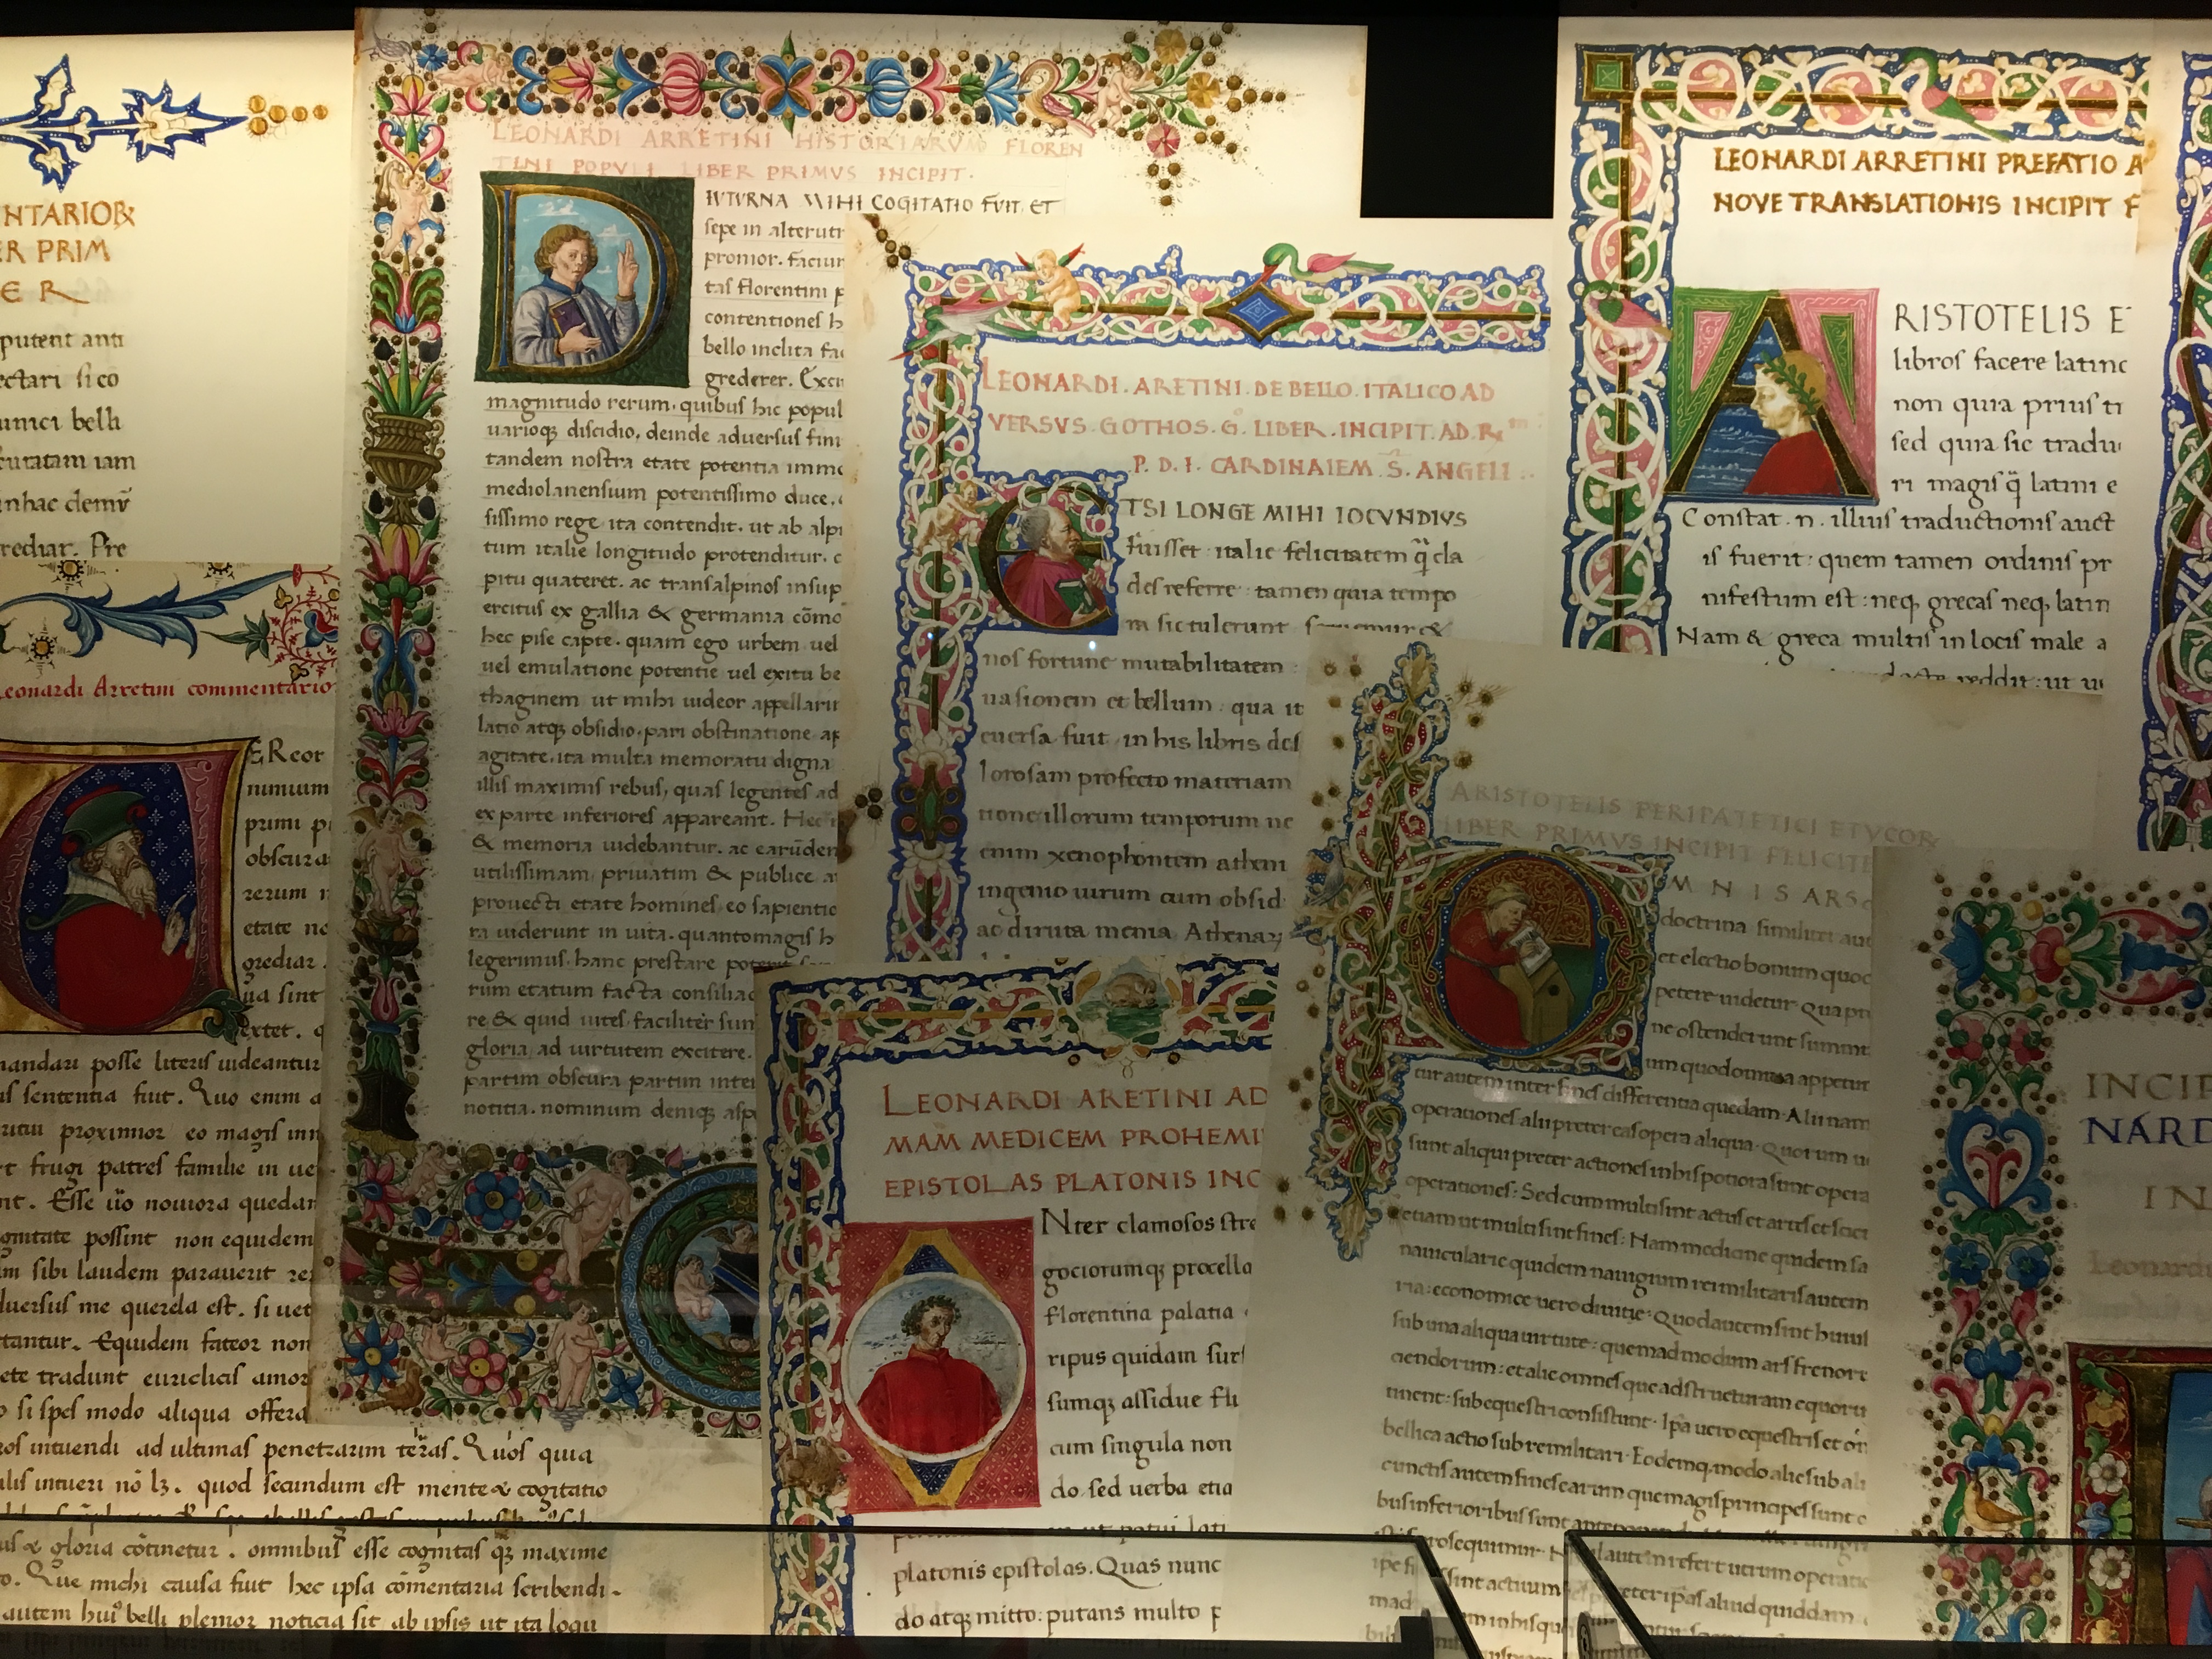 NTARIOR
ER PRIM
E R
putent anti
ectari si co
unici belli
cutatam iam
inhac demū
rediar. Pre
Leonardi Arretini commentario
Reor
nimium
primi p
obscura
rerum
etate no
grediar
ua sint
extet. q
mandari posse literis uideantur
sententia fuit. Quo enim a
proximior eo magis inn
frugi patres familie in ue
nt. Esse ũo nouiora quedam
gnitate possint non equidem
m sibi laudem parauerit re
duersus me querela est. si uet
tantur. Equidem fateor non
ete tradunt euriclicis amor
si spes modo aliqua offera
ros intuendi ad ultimas penetrarim terras. Quos quia
alis intueri nō lz. quod secundum est mente & cogitatio
us & gloria cōtinetur. omnibus esse cognitas maxime
o. Que michi causa fuit hec ipsa cōmentaria scribendi.
autem huius belli plenior noticia sit ab ipsis ut ita loqu
LEONARDI ARRETINI HISTORIARVM FLOREN
TINI POPVLI LIBER PRIMVS INCIPIT.
D IVTVRNA MIHI COGITATIO FVIT ET
sepe in alterutr
pronior. faciun
tas florentini p
contentiones h
bello inclita fac
grederer. Exci
magnitudo rerum. quibus hic popul
uarioq; discidio, deinde aduersus fini
tandem nostra etate potentia immo
mediolanensium potentissimo duce.
tissimo rege ita contendit. ut ab alpi
tum italie longitudo protenditur. c
pitu quateret. ac transalpinos insup
ercitus ex gallia & germania cōmo
hec pise capte. quam ego urbem uel
uel emulatione potentie uel exitu be
thaginem ut mihi uideor appellarim
latio atq; obsidio. pari obstinatione ap
agitate. ita multa memoratu digna
illis maximis rebus, quas legentes ad
ex parte inferiores appareant. Hec
& memoria uidebantur. ac earūdem
utilissimam, priuatim & publice a
prouecti etate homines eo sapientio
ra uiderunt in uita. quantomagis h
legerimus. hanc prestare poterit
rum etatum facta consiliaq
re & quid uites faciliter sum
gloria ad uirtutem excitere.
partim obscura partim inter
notitia. nominum deniq; asp
LEONARDI . ARETINI . DE BELLO . ITALICO AD
VERSVS . GOTHOS . G. LIBER . INCIPIT . AD . R.
P. D. I. CARDINALEM . S. ANGELI
E TSI LONGE MIHI IOCVNDIVS
fuisset italie felicitatem q̃ cla
des referre tamen quia tempo
ra sic tulerunt
nos fortune mutabilitatem
uasionem et bellum : qua it
euersa fuit in his libris des
lorosam profecto materiam
tione illorum temporum ne
enim xenophontem athen
ingenio uirum cum obsid
ac diruta menia Athenar
LEONARDI ARRETINI PREFATIO A
NOVE TRANSLATIONIS INCIPIT F
A RISTOTELIS E
libros facere latino
non quia prius tr
sed quia sic tradu
ri magis q̃ latini e
Constat . n . illius traductionis auct
is fuerit : quem tamen ordinis pr
nifestum est : neq; grecas neq; latin
Nam & greca multis in locis male a
reddit : ut
LEONARDI ARETINI AD
MAM MEDICEM PROHEMI
EPISTOLAS PLATONIS INC
I Nter clamosos stre
gociorumq; procella
florentina palatia
ripus quidam sur
sumq; assidue flu
cum singula non
do sed uerba etia
platonis epistolas. Quas nunc
do atq; mitto : putans multo p
ARISTOTELIS PERIPATETICI ETYCOR
LIBER PRIMVS INCIPIT FELICITE
O M N I S ARS
doctrina similiter aut
et electio bonum quod
petere uidetur Qua pr
ne ostenderunt summ
um quod omnia appetunt
tur autem inter fines differentia quedam . Alii nam
operationes alii preter eas opera aliqua . Quorum u
sunt aliqui preter actiones in his potiora sunt opera
operationes : Sed cum multi sint actus et artes et scien
etiam ut multi sint fines : Nam medicine quidem sa
nauicularie quidem nauigium rei militaris autem
ria : economice uero diuitie . Quod autem sint huius
sub una aliqua uirtute : quemadmodum ars frenor
ciendorum : et alie omnes que ad structuram equoru
tinent : sub equestri consistunt . Ipsa uero equestris et om
bellica actio sub re militari . Eodemq; modo alie sub ali
cunctis autem fines earum que magis principes sunt
bus inferioribus sunt
INCIP
NARD
IN
Leonardi